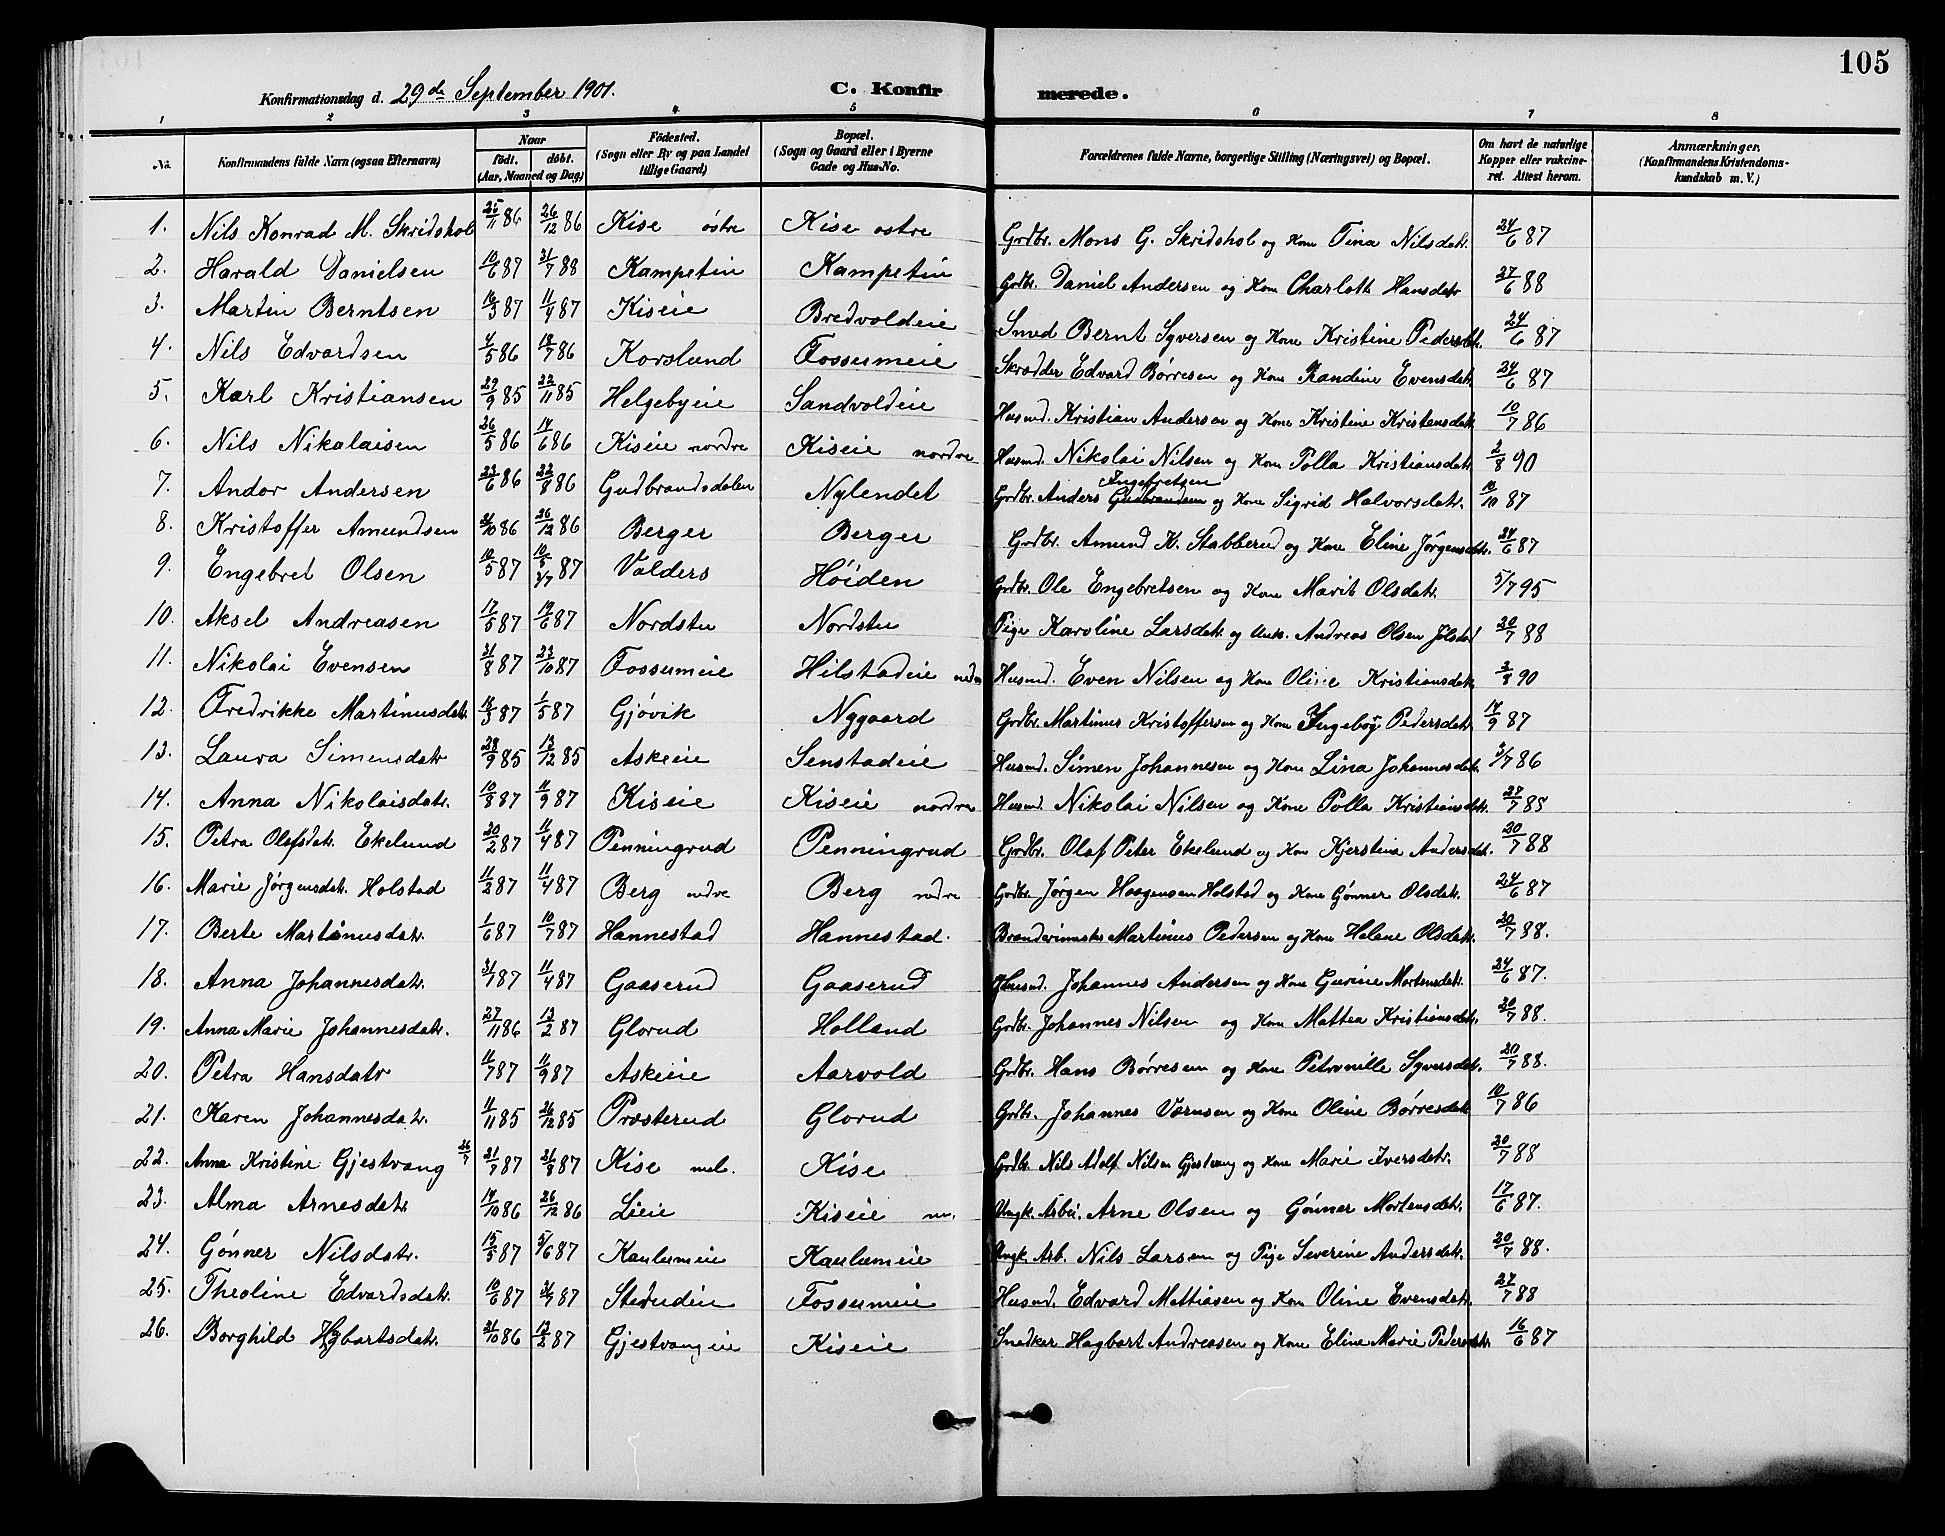 105
Konfirmationsdag d. 29de September 1901.
C. Konfirmerede.
1 2 3 4 5 6 7 8
No. Konfirmandens fulde Navn (ogsaa Efternavn) Naar födt. döbt. (Aar, Maaned og Dag) Födested. (Sogn eller By og paa Landet tillige Gaard) Bopæl. (Sogn og Gaard eller i Byerne Gade og Hus-No. Forældrenes fulde Navne, borgerlige Stilling (Næringsvei) og Bopæl. Om havt de naturlige Kopper eller vakcineret. Attest herom. Anmærkninger. (Konfirmandens Kristendomskundskab m. V.)
1. Nils Konrad M. Skridshol 25/11 86 26/12 86 Kise östre Kise östre Grdbr. Mons G. Skridshol og Kone Tina Nilsdatr. 24/6 87
2. Harald Danielsen 10/6 87 31/7 88 Kampetin Kampetin Grdbr. Daniel Andersen og Kone Charlotte Hansdatr 27/6 88
3. Martin Berntsen 3 87 11/4 87 Kiseie Bredvoldeie Smed Bernt Syversen og Kone Kristine Pedersdtr. 24/6 87
4. Nils Edvardsen 5 86 18/7 86 Korslund Fossumeie Skrædder Edvard Børresen og Kone Randine Evensdatr 24/6 87
5. Karl Kristiansen 29/9 85 22/11 85 Helgebyeie Sandvoldeie Husmd. Kristian Andersen og Kone Kristine Kristensdatr 10/7 86
6. Nils Nikolaisen 26/5 86 14/6 86 Kiseie nordre Kiseie nordre Husmd. Nikolai Nilsen og Kone Polla Kristiansdatr. 2/8 90
7. Andor Andersen 23/6 86 22/8 86 Gudbrandsdalen Nylendet Grdbr. Anders Gudbrandsen Ingebretsen og Kone Sigrid Halvorsdatr. 10 87
8. Kristoffer Amundsen 10 86 26/12 86 Berger Berger Grdbr. Amund K. Stabberud og Kone Eline Jørgensdatr. 24/6 87
9. Engebret Olsen 5 87 10/5 3/7 87 Valders Höiden Grdbr. Ole Engebretsen og Kone Marit Olsdatr. 5/7 95
10. Aksel Andreasen 17/5 87 19/6 87 Nordstu Nordstu Pige Karoline Larsdatr. og Unk. Andreas Olsen Jølstad 20/7 88
11. Nikolai Evensen 31/8 87 23/10 87 Fossumeie Hilstadeie nedre Husmd. Even Nilsen og Kone Oline Kristiansdatr. 2/8 90
12. Fredrikke Martinusdatr. 3 87 1/5 87 Gjövik Nygaard Grdbr. Martinus Kristoffersen og Kone Ingebog Pedersdatr. 9 87
13. Laura Simensdatr 28/9 85 13/12 85 Askeeie Senstadeie Husmd. Simen Johannesen og Kone Lina Johannesdatr. 3/7 86
14. Anna Nikolaisdatr. 10/8 87 11/9 87 Kiseie Kiseie nordre Husmd. Nikolai Nilsen og Kone Polla Kristiansdatr. 27/7 85
15. Petra Olafsdatr. Ekelund 20/2 87 11/4 87 Penningrud Penningrud Grdbr. Olaf Peter Ekelund og Kone Kjerstina Andersdatr. 20/7 88
16. Marie Jørgensdatr. Holstad 11/2 87 11/4 87 Berg nedre Berg nedre Grdbr. Jørgen Haagensen Holstad og Kone Gönner Olsdatr. 24/6 87
17. Berte Martinusdatr. 1/6 87 10/7 87 Hannestad Hannestad. Martinus Pedersen og Kone Helene Olsdatr. 20/7 88.
18. Anna Johannesdatr. 87 11/4 87 Gaaserud Gaaserud Husmd. Johannes Andersen og Kone Gurine Mortensdatr. 24/6 87.
19. Anna Marie Johannesdatr. 27/11 86 13/2 87 Glorud Holland Grdbr. Johannes Nilsen og Kone Mattea Kristiansdatr. 20/7 88.
20. Petra Hansdatr 11/7 87 11/9 87 Askeeie Aarvold Grdbr. Hans Børresen og Kone Petronille Syversdatr. 20/7 88.
21. Karen Johannesdatr. 11/11 85 26/12 85 Prosterud Glorud Grdbr. Johannes og Kone Oline Børresdatr 10/7 86
22. Anna Kristine Gjestvang 26/7 21/7 87 21/8 87 Kise mel. Kise Grdbr. Nils Adolf Nilsen Gjestvang og Kone Marie Iversdatr. 20/7 88
23. Alma Arnesdatr. 14/10 86 26/12 86 Lieie Kiseie Ungk. Arbei. Arne Olsen og Gönner Mortensdatr. 17/6 87.
24. Gönner Nilsdatr. 15/5 87 5/6 87 Kaulumeie Kaulumeie Ungk. Arb. Nils Larsen og Pige Severine Andersdatr. 20/7 88.
25. Theoline Edvardsdatr. 10/6 87 31/7 87 Fossumeie Husmd. Edvard Mattiasen og Kone Oline Evensdatr. 27/7 88
26. Borghild Hagbartsdatr. 31/10 86 13/2 87 Gjestvangeie Kiseie Snedker Hagbart Andreasen og Kone Eline Marie Pedersdatr. 16/6 87